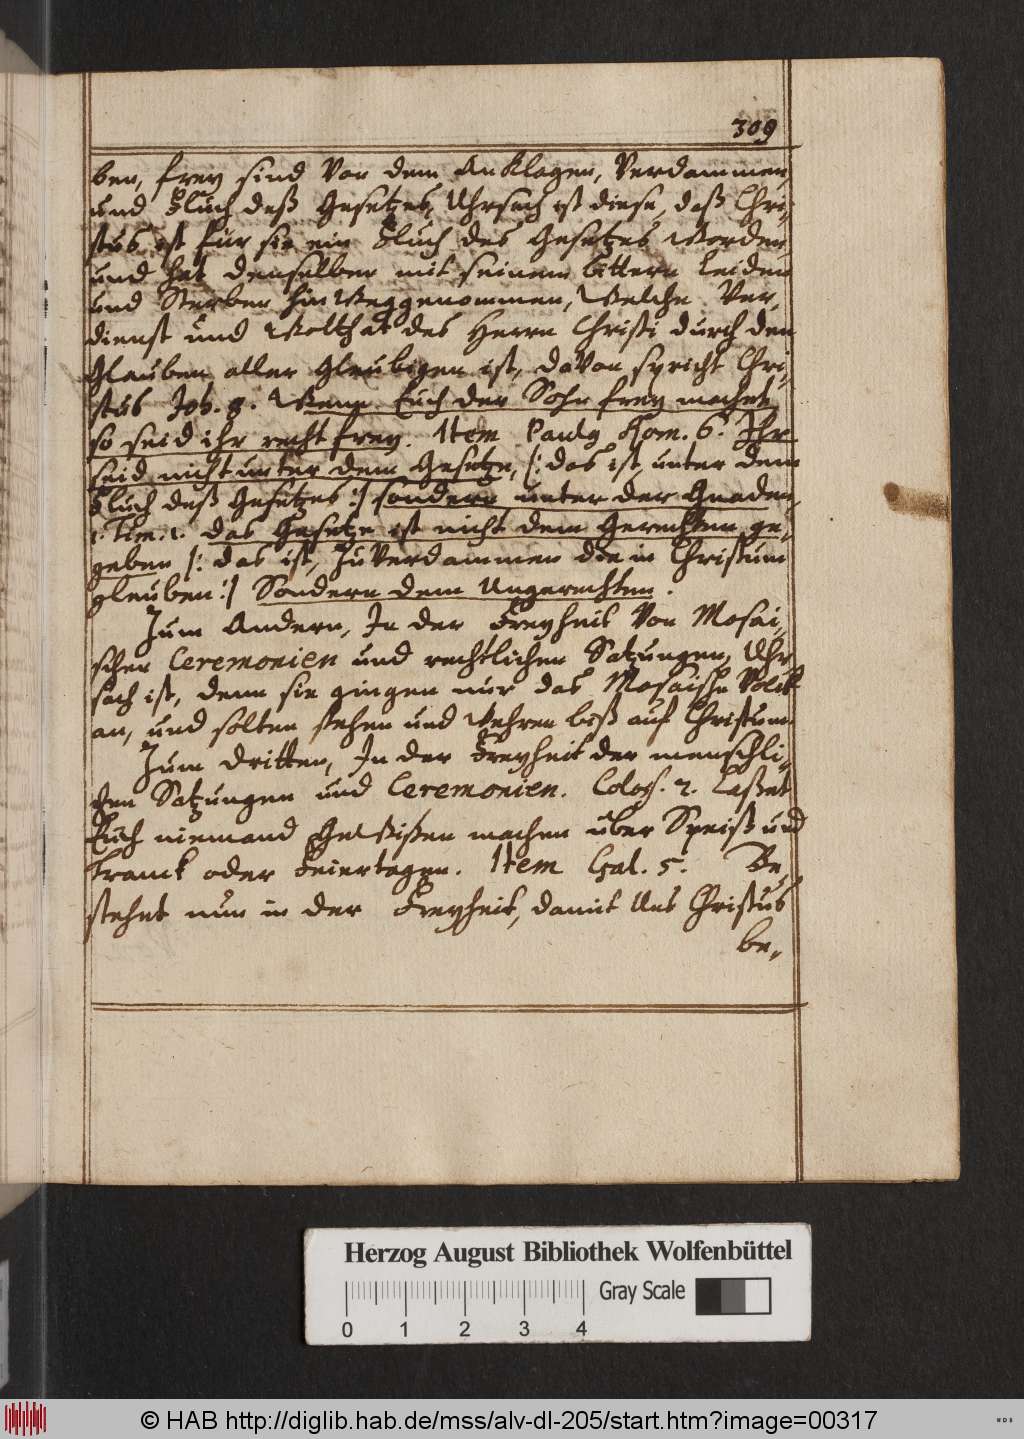 309
ben, frey sind Von dem Anklagen, Verdammen
und Fluch deß Gesetzes, Uhrsach ist diese, daß Chri„
stus ist für sie ein Fluch des Gesetzes Worden
und hat denselben mit seinem bittern Leiden
und Sterben hinWeggenommen, Welche Ver„
dienst und Wolthat des Herrn Christi durch den
Glauben aller Gleubigen ist, daVon spricht Chri„
stus Joh. 8. Wenn Euch der Sohn frey machet
so seid ihr recht frey. Item Pauly Rom. 6. Ihr
seid nicht unter dem Gesetze, /: das ist, unter dem
Fluch deß Gesetzes :/ sondern unter der Gnaden,
1. Tim. 1. das Gesetze ist nicht dem Gerechten ge„
geben /: das ist, zuVerdammen die in Christum
gleuben :/ Sondern dem Ungerechten.
Zum Andern, In der Freyheit Von Mosai„
schen Ceremonien und rechtlichen Satzungen, Uhr
sach ist, denn sie gingen nur das Mosaische Volck
an, und solten stehen und Wehren biß auf Christum.
Zum dritten, In der Freyheit der menschli„
chen Satzungen und Ceremonien. Colos. 2. Laßet
Euch niemand GeWißen machen über Speiß und
Tranck oder Feiertagen. Item Gal. 5. Be„
stehet nun in der Freyheit, damit Uns Christus
be„
Herzog August Bibliothek Wolfenbüttel
Gray Scale
0 1 2 3 4
© HAB http://diglib.hab.de/mss/alv-dl-205/start.htm?image=00317